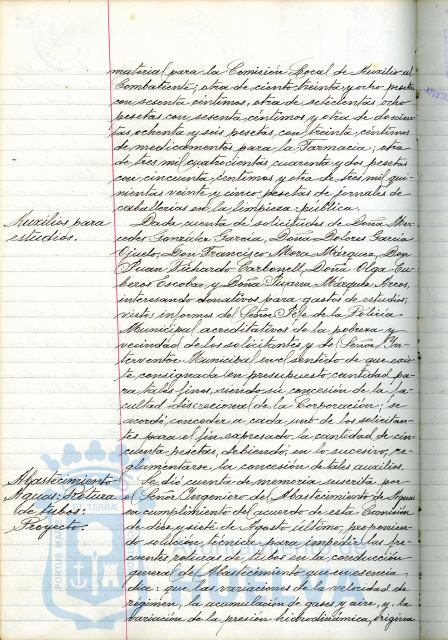 material para la Comisión Local de Auxilio al
Combatiente; otra de ciento treinta y ocho pesetas
con sesenta céntimos; otra de setecientas ocho
pesetas con sesenta céntimos y otra de doscien-
tas ochenta y seis pesetas con treinta céntimos
de medicamentos para la Farmacia; otra
de tres mil cuatrocientas cuarenta y dos pesetas
con cincuenta céntimos y otra de tres mil qui-
nientas veinte y cinco pesetas de jornales de
caballerías en la limpieza pública.
Auxilios para
estudios.
Dada cuenta de solicitudes de Doña Mer-
cedes González García, Doña Dolores García
Don Francisco Mora Márquez, Don
Juan Pichardo Carbonell, Doña Olga Cu-
beros Escobar y Doña Márquez Arcos,
interesando donativos para gastos de estudios;
vistos informes del Señor Jefe de la Policía
Municipal acreditativos de la pobreza y
vecindad de los solicitantes y del Señor In-
terventor Municipal en el sentido de que exis-
te consignada en presupuesto cantidad pa-
ra tales fines, siendo su concesión de la fa-
cultad discrecional de la Corporación; se
acordó, conceder a cada uno de los solicitan-
tes para el fin expresado, la cantidad de cin-
cuenta pesetas, debiendo, en lo sucesivo, re-
glamentarse la concesión de tales auxilios.
Abastecimiento
Aguas: Rotura
de tubos:
Proyecto.
Se dió cuenta de memoria suscrita por
el Señor Ingeniero del Abastecimiento de Aguas
en cumplimiento del acuerdo de esta Comisión
de diez y siete de Agosto último, proponien-
do solución técnica para impedir las fre-
cuentes roturas de tubos en la conducción
general de Abastecimiento que en esencia
dice: que las variaciones de la velocidad de
régimen, la acumulación de gases y aire, y la
variación de la presión hidrodinámica, origina